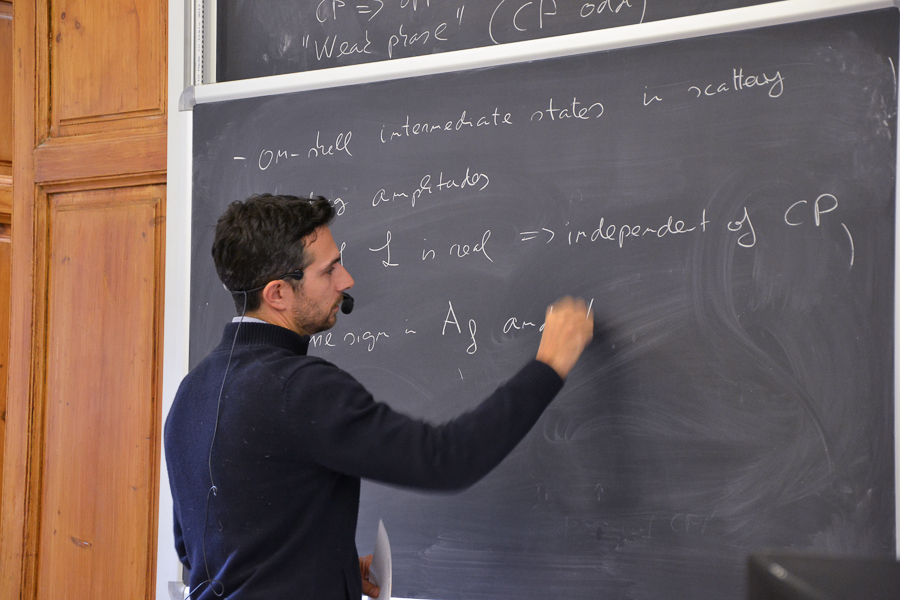 CP =>
"Weak phase" (CP odd)
- on-shell intermediate states in scattering
amplitudes
L is real => independent of CP,
sign in Af and